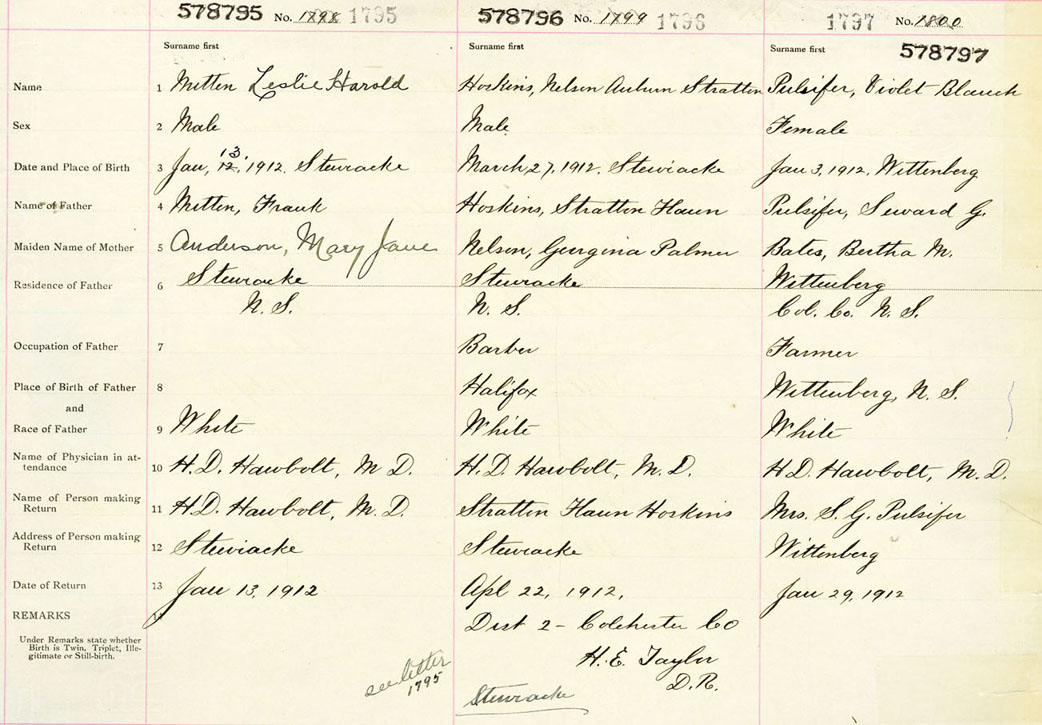 578795 No. 1798 1795 578796 No. 1799 1796 1797 No. 1800
578797
Surname first Surname first Surname first
Name 1 Mitten Leslie Harold Hoskins, Nelson Auburn Stratton Pulsifer, Violet Blanch
Sex 2 Male Male Female
Date and Place of Birth 3 Jan, 12, 13, 1912. Stewiacke March 27, 1912. Stewiacke Jan 3, 1912. Wittenberg
Name of Father 4 Mitten, Frank Hoskins, Stratton Haun Pulsifer, Seward G.
Maiden Name of Mother 5 Anderson, Mary Jane Nelson, Georgina Palmer Bates, Bertha M.
Residence of Father 6 Stewiacke Stewiacke Wittenberg
N. S. N. S. Col. Co. N. S.
Occupation of Father 7 Barber Farmer
Place of Birth of Father 8 Halifax Wittenberg, N. S.
and
Race of Father 9 White White White
Name of Physician in at-
tendance 10 H. D. Hawbolt, M D. H. D. Hawbolt, M. D. H D. Hawbolt, M. D.
Name of Person making
Return 11 H D. Hawbolt, M. D. Stratton Haun Hoskins Mrs. S. G. Pulsifer
Address of Person making
Return 12 Stewiacke Stewiacke Wittenberg
Date of Return 13 Jan 13, 1912 Apl 22, 1912, Jan 29, 1912
REMARKS 14 Dist 2 - Colchester Co
Under Remarks state whether
Birth is Twin, Triplet, Ille-
gitimate or Still-birth.
H. E. Taylor
D. R.
see letter
1795
Stewiacke